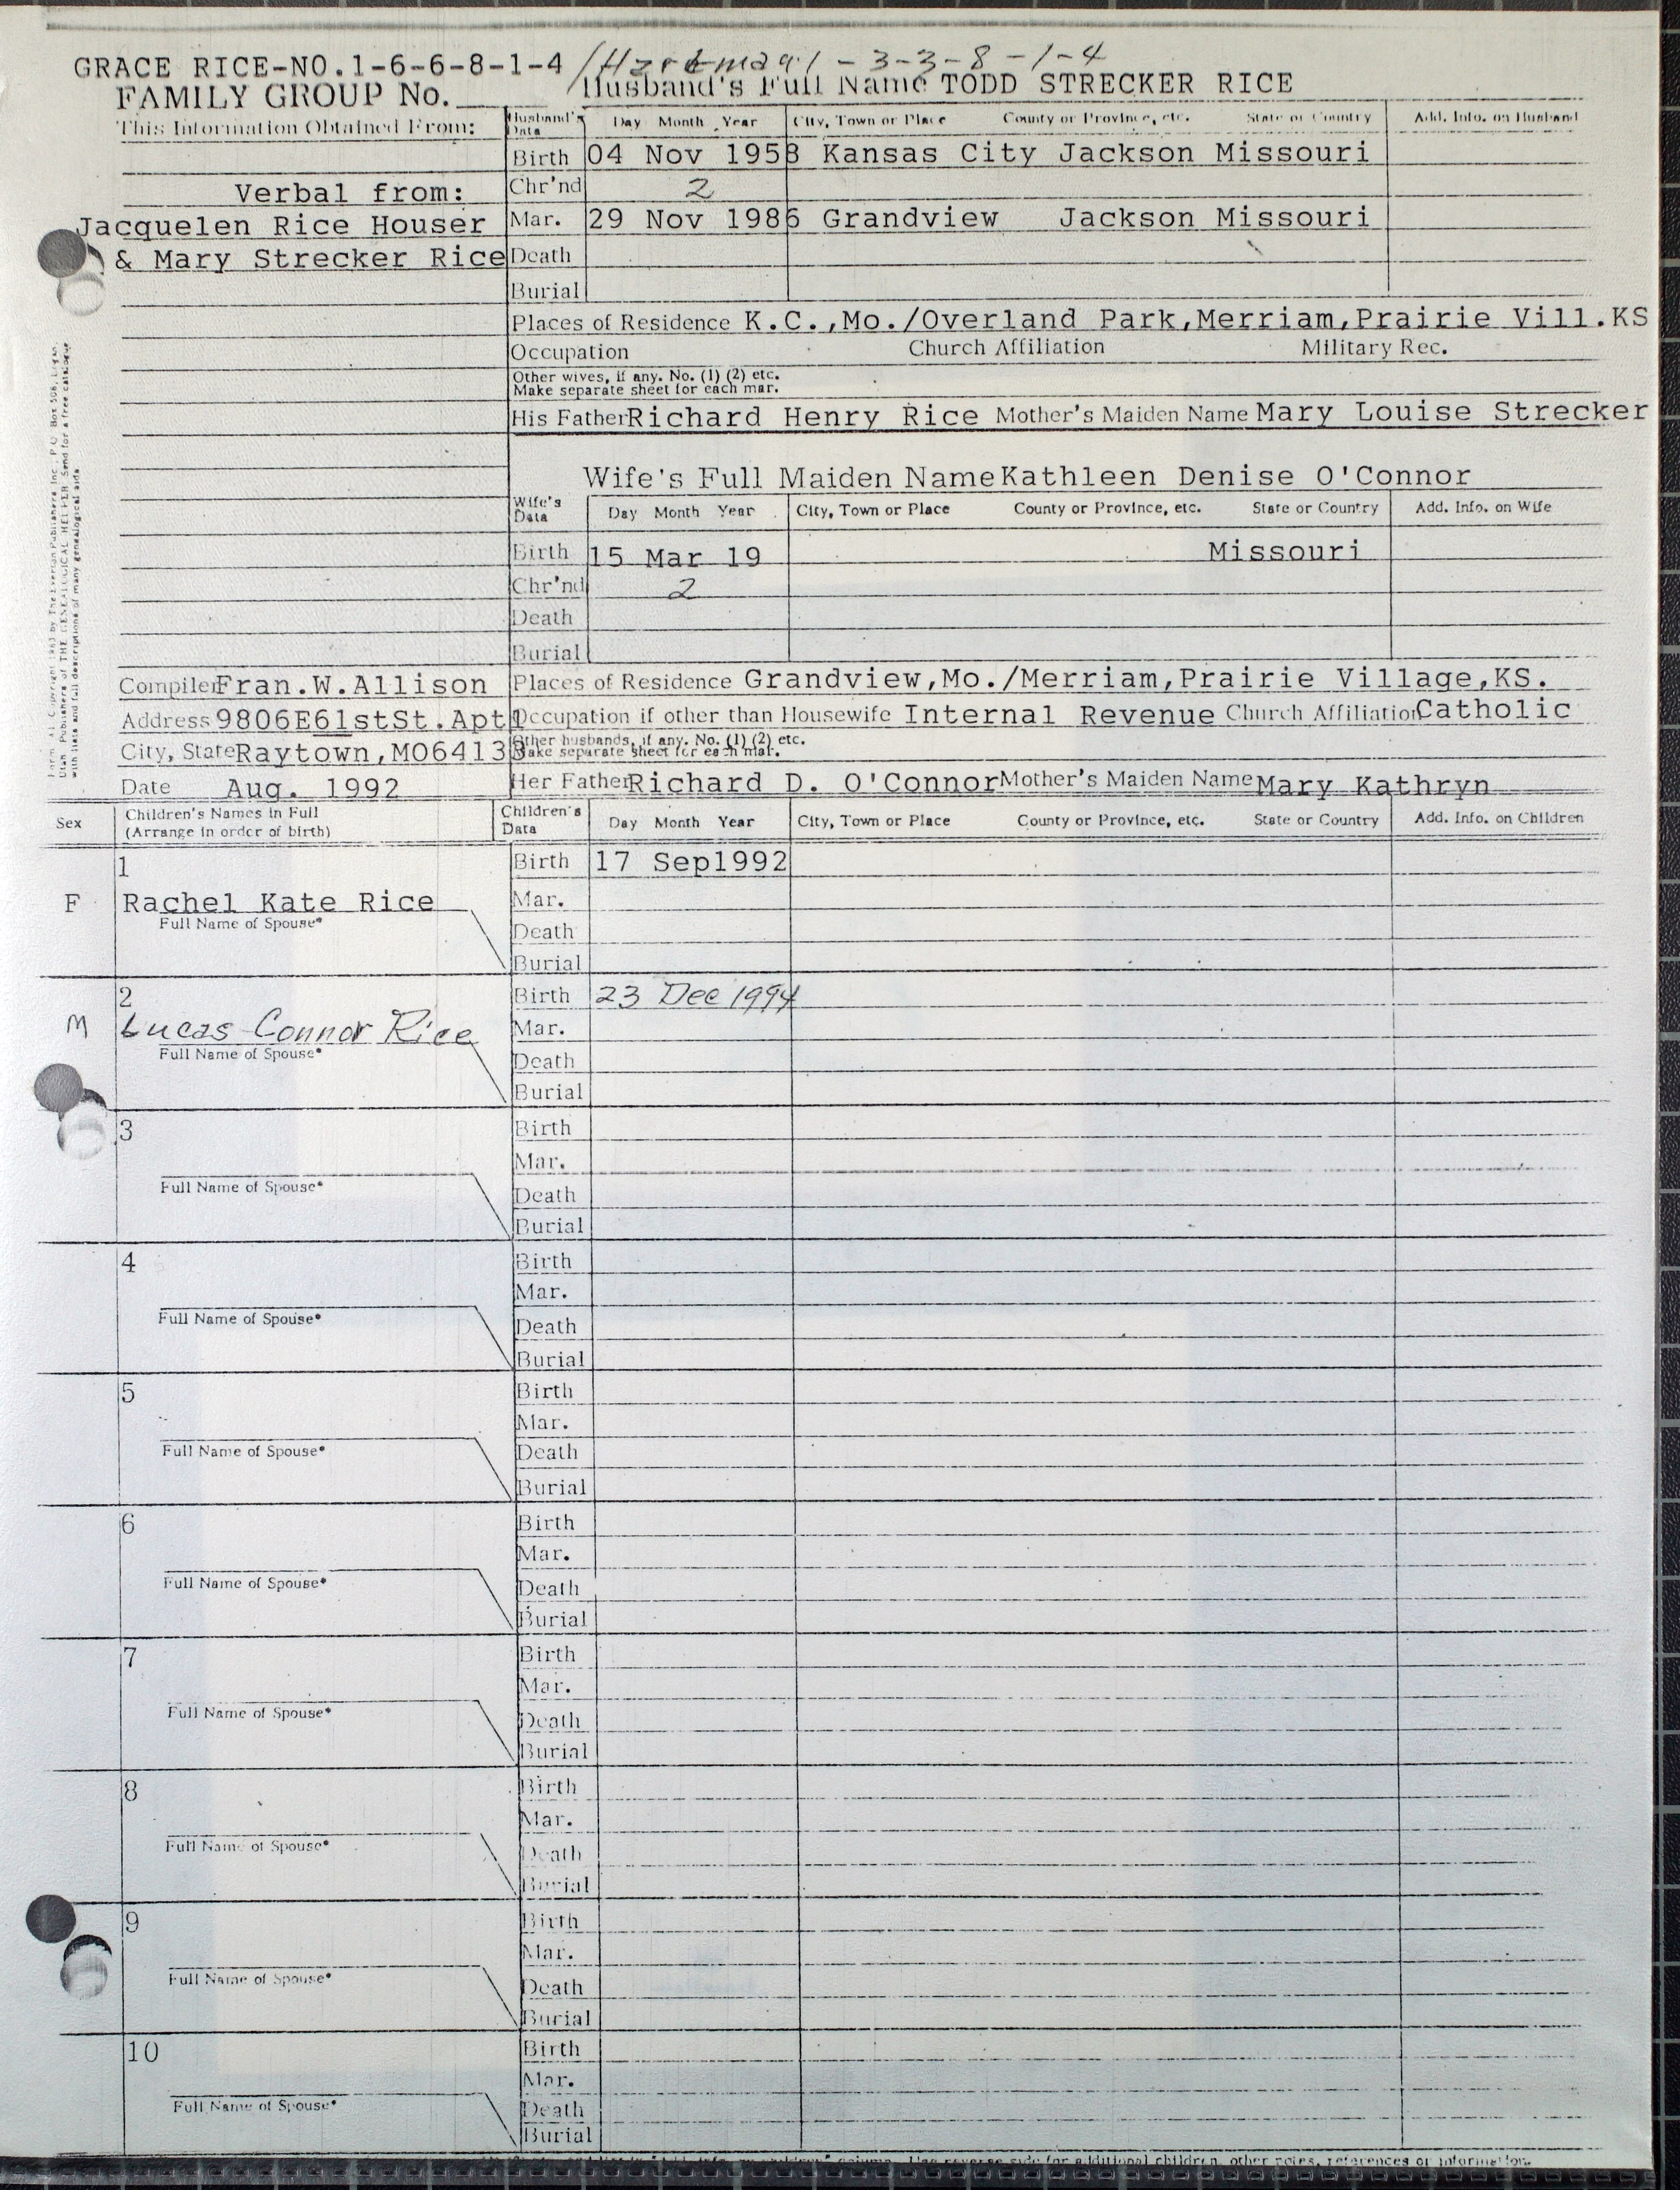 GRACE RICE-NO.1-6-6-8-1-4 /Hartman 1-3-3-8-1-4
FAMILY GROUP No. Husband's Full Name TODD STRECKER RICE
This Information Obtained From: Husband's Data Day Month Year City, Town or Place County or Province, etc. State or Country Add. Info. on Husband
Birth 04 Nov 1958 Kansas City Jackson Missouri
Verbal from: Chr'nd 2
Jacquelen Rice Houser Mar. 29 Nov 1986 Grandview Jackson Missouri
& Mary Strecker Rice Death
Burial
Places of Residence K.C.,Mo./Overland Park,Merriam,Prairie Vill.KS
Occupation Church Affiliation Military Rec.
Other wives, if any. No. (1) (2) etc.
Make separate sheet for each mar.
His Father Richard Henry Rice Mother's Maiden Name Mary Louise Strecker
Wife's Full Maiden Name Kathleen Denise O'Connor
Wife's Data Day Month Year City, Town or Place County or Province, etc. State or Country Add. Info. on Wife
Birth 15 Mar 19 Missouri
Chr'nd 2
Death
Burial
Compiler Fran.W.Allison Places of Residence Grandview,Mo./Merriam,Prairie Village,KS.
Address 9806E61stSt.Apt1 Occupation if other than Housewife Internal Revenue Church Affiliation Catholic
City, State Raytown,MO64133 Other husbands, if any. No. (1) (2) etc.
Make separate sheet for each mar.
Date Aug. 1992 Her Father Richard D. O'Connor Mother's Maiden Name Mary Kathryn
Sex Children's Names in Full (Arrange in order of birth) Children's Data Day Month Year City, Town or Place County or Province, etc. State or Country Add. Info. on Children
1 Birth 17 Sep1992
F Rachel Kate Rice Mar.
Full Name of Spouse* Death
Burial
2 Birth 23 Dec 1994
M Lucas Connor Rice Mar.
Full Name of Spouse* Death
Burial
3 Birth
Mar.
Full Name of Spouse* Death
Burial
4 Birth
Mar.
Full Name of Spouse* Death
Burial
5 Birth
Mar.
Full Name of Spouse* Death
Burial
6 Birth
Mar.
Full Name of Spouse* Death
Burial
7 Birth
Mar.
Full Name of Spouse* Death
Burial
8 Birth
Mar.
Full Name of Spouse* Death
Burial
9 Birth
Mar.
Full Name of Spouse* Death
Burial
10 Birth
Mar.
Full Name of Spouse* Death
Burial
column. Use reverse side for additional children, other notes, references or information.
Copyright 1983 by The Everton Publishers Inc., P.O. Box
Utah Publishers of THE GENEALOGICAL HELPER. Send for a free catalogue
with lists and full descriptions of many genealogical aids